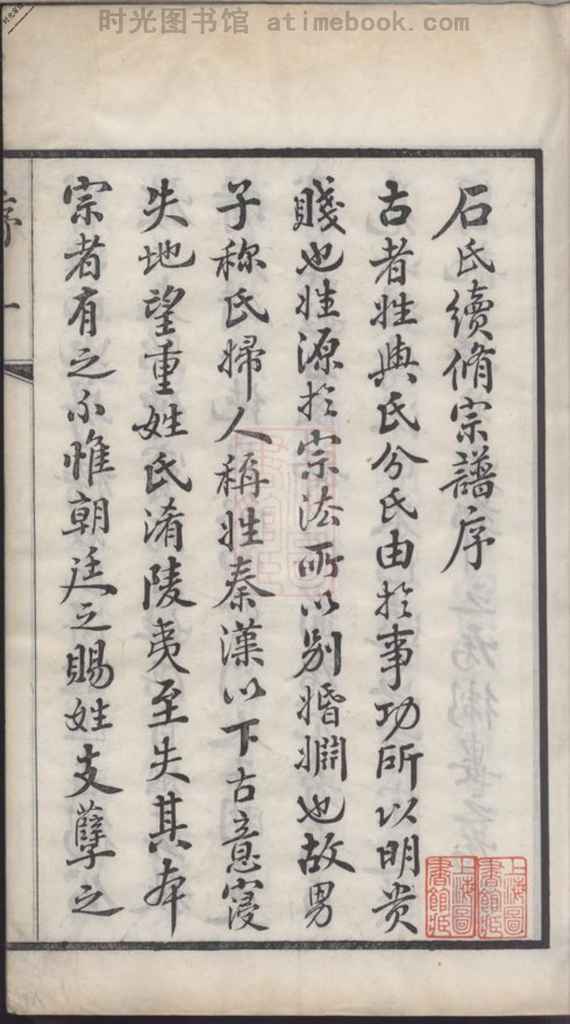 时光图书馆 atimebook.com
石氏續脩宗譜序
古者姓與氏分氏由於事功所以明贵
賤也姓源於宗法所以別婚姻也故男
子称氏婦人稱姓秦漢以下古意寖
失地望重姓氏淆陵夷至失其本
宗者有之不惟朝廷之賜姓支孽之
序 一
上海圖
書館藏
上海圖
書館藏